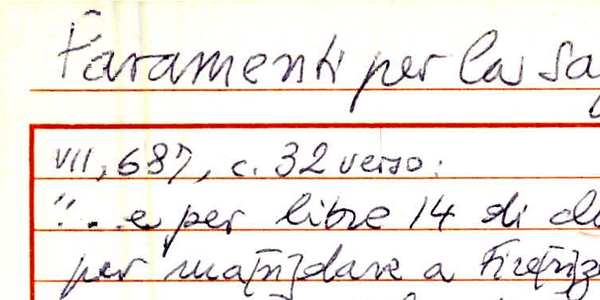 Paramenti per la sa
VII, 687, c. 32 verso:
"... e per libre 14 di d
per ma[n]dare a Fire[n]z